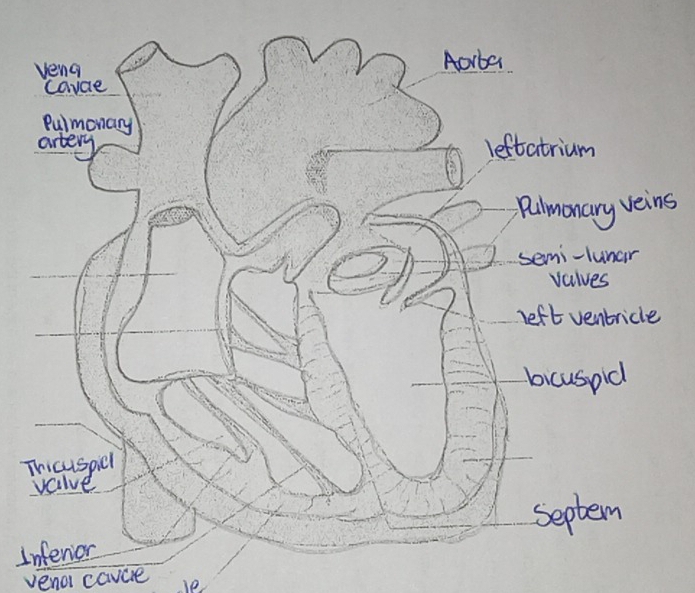 Vena
cavae
Aorta
Pulmonary
artery
left atrium
Pulmonary veins
semi-lunar
valves
left ventricle
bicuspid
Tricuspid
valve
Septem
Inferior
vena cavae